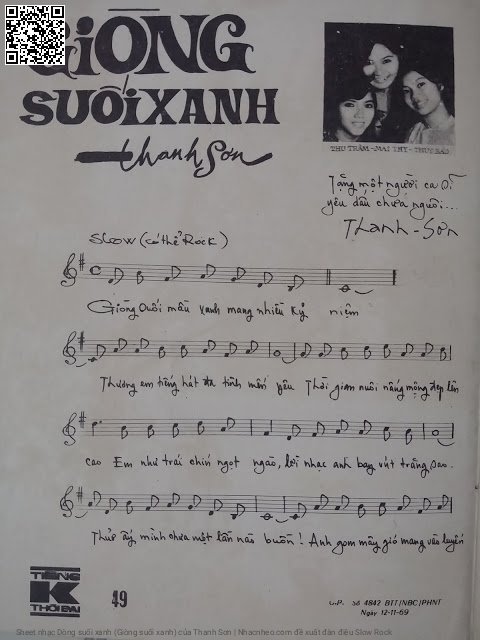 GIÒNG
SUỐI XANH
Thanh Sơn
THU TRÂM - MAI THY - THÚY BẢO
Tặng một người ca sĩ
yêu dấu chưa nguôi...
Thanh-Sơn
SLOW (có thể ROCK)
Giòng suối mầu xanh mang nhiều kỷ niệm
Thương em tiếng hát đa tình mến yêu Thời gian nuôi nấng mộng đẹp lên
cao Em như trái chín ngọt ngào, lời nhạc anh bay vút trăng sao.
Thuở ấy mình chưa một lần nào buồn! Anh gom mây gió mang vào luyến
TIẾNG
K
THỜI ĐẠI
49
G.P. Số 4842 BTT/NBC/PHNT
Ngày 12-11-69
Sheet nhạc Dòng suối xanh (Giòng suối xanh) của Thanh Sơn | Nhacnheo.com đề xuất đàn điệu Slow Rock